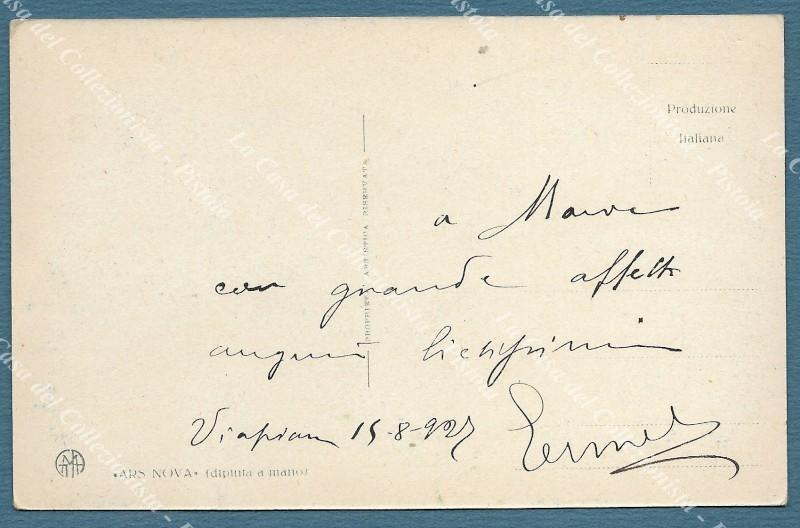 Produzione
Italiana
PROPRIETÀ ARTISTICA RISERVATA
a
con grande affetto
auguri lietissimi
15-8-927
«ARS NOVA» (dipinta a mano)
La Casa del Collezionista - Pistoia